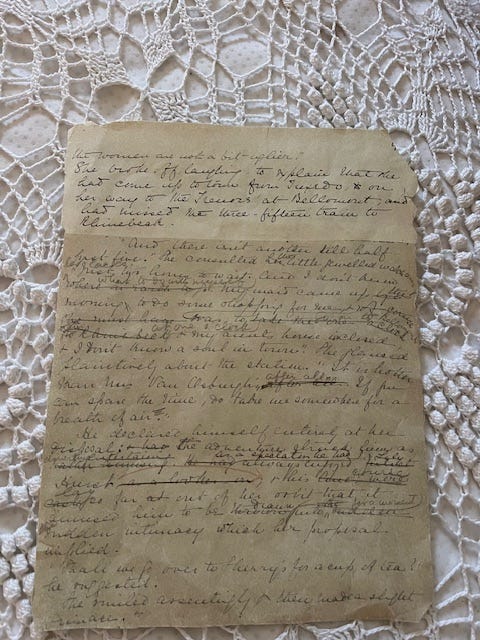 the women are not a bit uglier."
She broke off laughing to explain that she
had come up to town from Tuxedo & on
her way to the Trenors at Bellomont, and
had missed the three-fifteen train to
Rhinebeck.
"And there isn't another till half
past five." She consulted her little jewelled watch
Just two hours to wait. And I don't know
what to do with myself
My maid came up
morning to do some shopping for me
& my aunt's house is closed
& I don't know a soul in town." She glanced
plaintively about the station. "It is hotter
than Mrs Van Osburgh's after all. If you
can spare the time, do take me somewhere for a
breath of air."
He declared himself entirely at her
disposal: the adventure struck him as
always enjoyed
& his
so far out of her orbit that it
amused him to be drawn into the
sudden intimacy which her proposal
implied.
"Shall we go over to Sherry's for a cup of tea?"
he suggested.
She smiled assentingly & then made a slight
grimace.